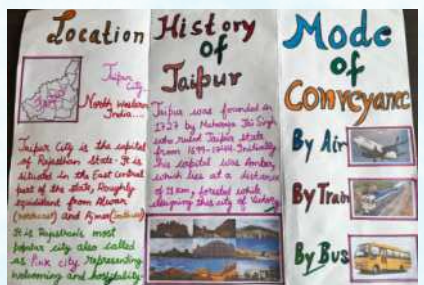 Location
Jaipur
City
North Western
India....
Jaipur City is the capital
of Rajasthan State. It is
situated in the East central
part of the state, Roughly
equidistant from Alwar
(northeast) and Ajmer
It is Rajasthan's most
popular city also called
as Pink city representing
welcoming and hospitality.
History
of
Jaipur
Jaipur was founded in
1727 by Maharaja Jai Singh
who ruled Jaipur state
from 1699-1744. Initially
his capital was Amber,
which lies at a distance
of 11 km,
designing this city of
Mode
of
Conveyance
By Air
By Train
By Bus